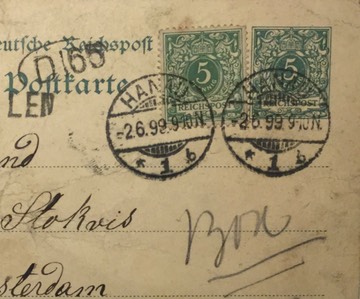 Deutsche Reichspost
Postkarte
D 65
LEN
5
REICHSPOST
5
REICHSPOST
HANAU
-2.6.99.9-10N.
* 1 b
HANAU
-2.6.99.9-10N.
* 1 b
nd
Stokvis
sterdam